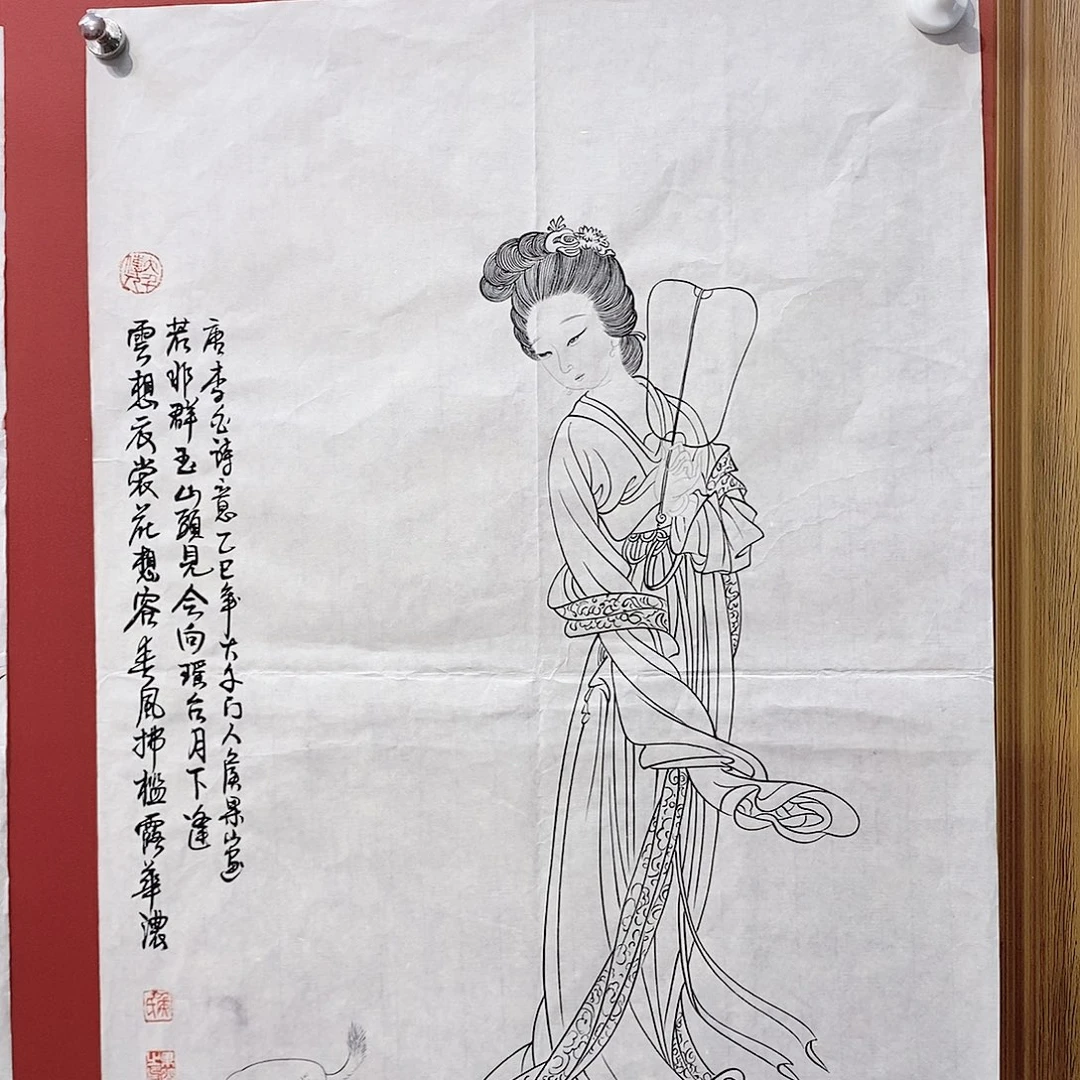 雲想衣裳花想容春風拂檻露華濃
若非群玉山頭見会向瑤台月下逢
唐李白詩意乙巳年大千门人